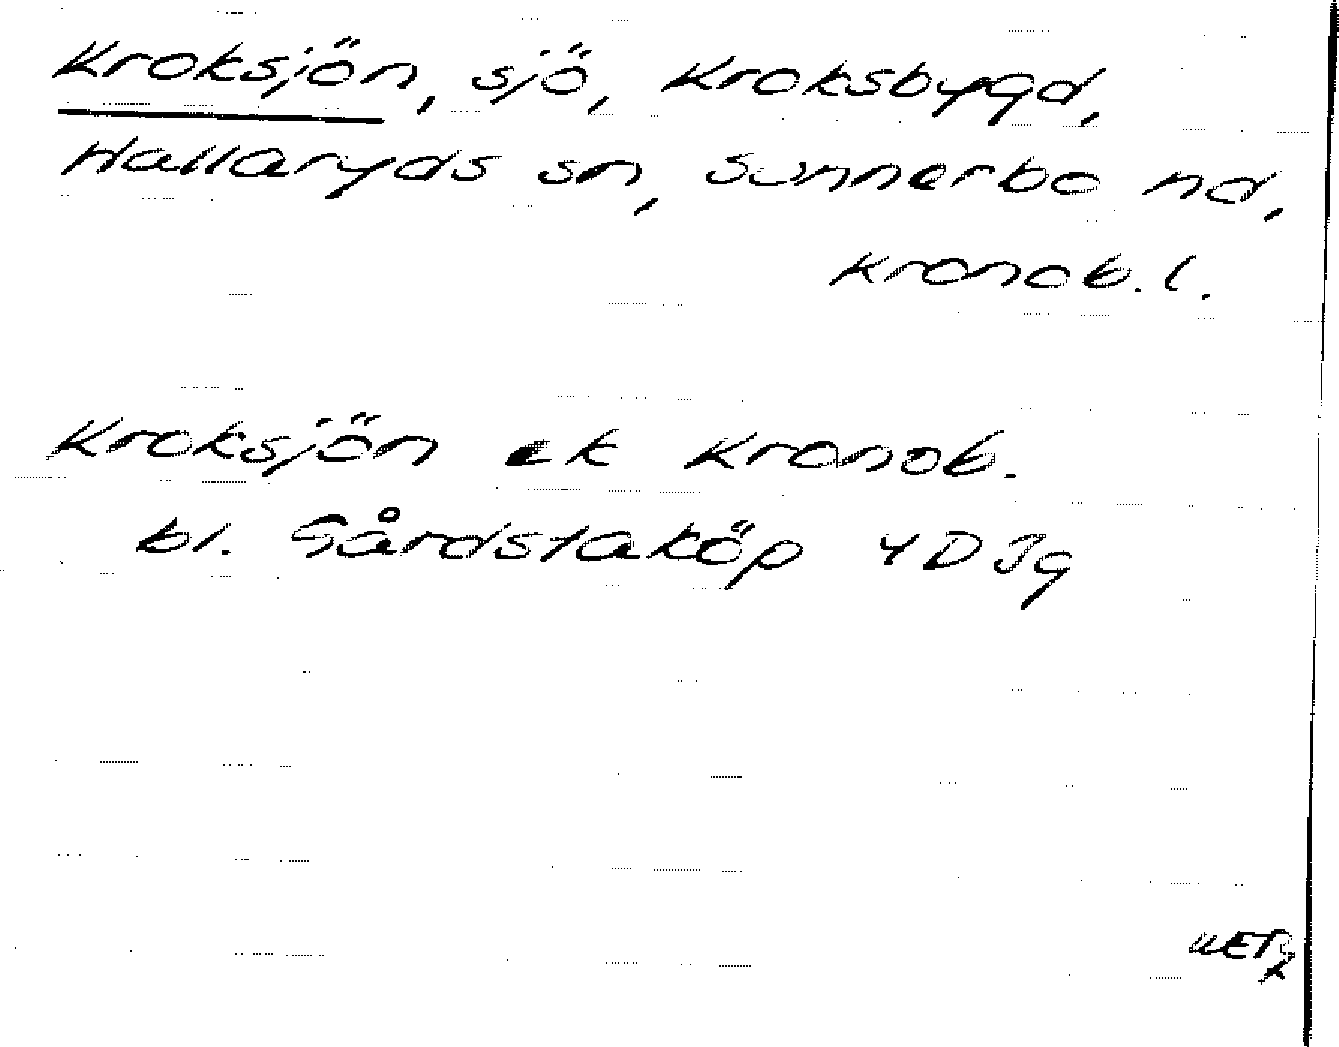 Kroksjön, sjö, Kroksbygd,
Hallaryds sn, Sunnerbo hd,
Kronob. l.
Kroksjön ek Kronob.
bl. Gårdstaköp 4D3g